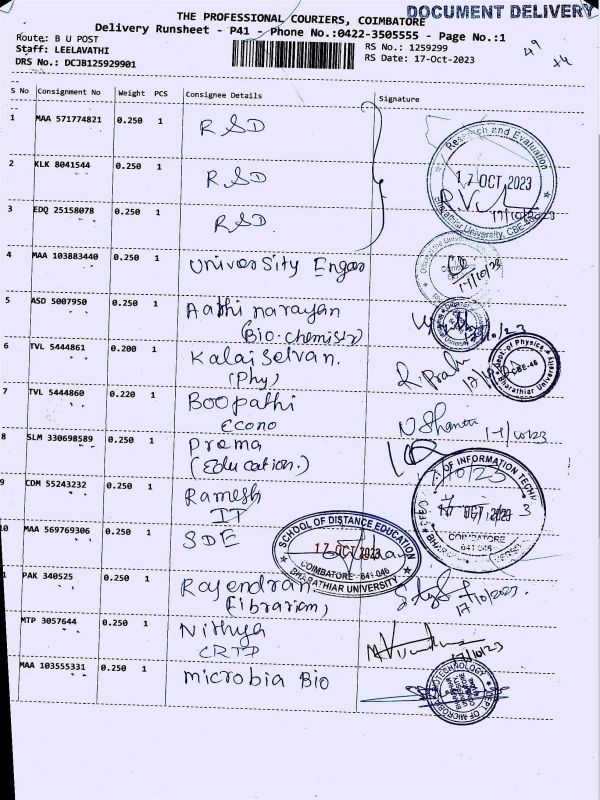 DOCUMENT DELIVERY
THE PROFESSIONAL COURIERS, COIMBATORE
Delivery Runsheet - P41 - Phone No.:0422-3505555 - Page No.:1
Route: B U POST
Staff: LEELAVATHI
DRS No.: DCJB125929901
RS No.: 1259299
RS Date: 17-Oct-2023
49
S No Consignment No Weight PCS Consignee Details Signature
1 MAA 571774821 0.250 1 RSD
Research and Evaluation
17 OCT 2023
17/10/2023
Bharathiar University, CBE-46
2 KLK 8041544 0.250 1 RSD
3 EDQ 25158078 0.250 1 RSD
4 MAA 103883440 0.250 1 University Engar
17/10/23
5 ASD 5007950 0.250 1 Aathi narayan
(Bio-chemistry)
6 TVL 5444861 0.200 1 Kalaiselvan.
(Phy)
Dept. of Physics
CBE-46
Bharathiar University
7 TVL 5444860 0.220 1 Boopathi
Econo
17/10/23
8 SLM 330698589 0.250 1 Prema
(Education.)
OF INFORMATION TECH
17 OCT 2023
COIMBATORE
641 046
9 CDM 55243232 0.250 1 Ramesh
IT
10 MAA 569769306 0.250 1 SDE
SCHOOL OF DISTANCE EDUCATION
17 OCT 2023
COIMBATORE - 641 046
BHARATHIAR UNIVERSITY
PAK 340525 0.250 1 Rajendran
(Librarian)
17/10/2023
MTP 3057644 0.250 1 Nithya
CRTP
17/10/23
MAA 103555331 0.250 1 Microbia Bio